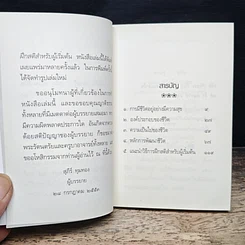 ฝึกสติสำหรับผู้เริ่มต้น หนังสือเล่มนี้ได้
เผยแพร่มาหลายครั้งแล้ว ในการพิมพ์
ได้จัดทำรูปเล่มใหม่
ขออนุโมทนาผู้ที่เกี่ยวข้องใน
หนังสือเล่มนี้ และขอขอบคุณญาติ
ทั้งหลายที่มีเมตตาต่อผู้บรรยาย
มีความผิดพลาดประการใด อันเกิดจาก
ด้อยสติปัญญาของผู้บรรยาย ก็ขอ
พระรัตนตรัยและครูบาอาจารย์ทั้งหลาย
อโหสิกรรมจากท่านผู้อ่านไว้ ณ ที่นี้
สุภีร์ ทุมทอง
ผู้บรรยาย
๒๘ กรกฎาคม
สารบัญ
๑. การมีชีวิตอยู่อย่างมีความสุข
๒. องค์ประกอบของชีวิต
๓. ความเป็นไปของชีวิต
๔. หลักการพัฒนาชีวิต
๕. แนะนำวิธีการฝึกสติสำหรับผู้เริ่มต้น